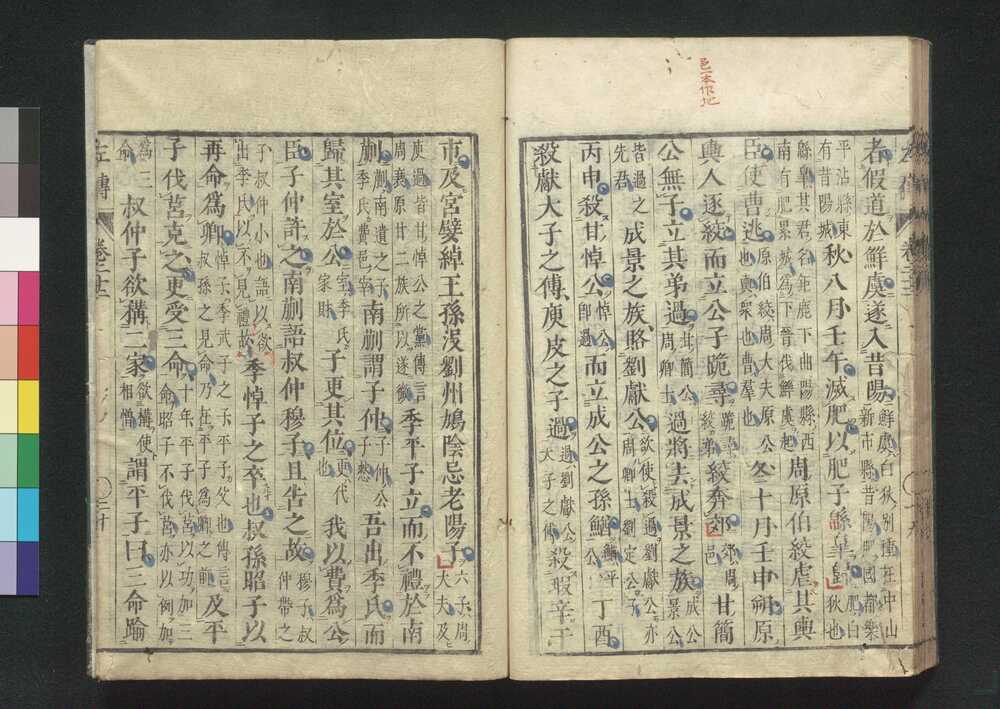 邑一本作地
者假道於鮮虞遂入昔陽鮮虞白狄別種在中山新市縣昔陽肥國都樂
平沾縣東有昔陽城秋八月壬午滅肥以肥子緜皐歸肥白狄也
緜皐其君名鉅鹿下曲陽縣西南有肥累城為下晉伐鮮虞起周原伯絞虐其輿
臣使曹逃原伯絞周大夫原公也輿衆也曹羣也冬十月壬申朔原
輿人逐絞而立公子跪尋跪尋絞弟絞奔郊郊周邑甘簡
公無子立其弟過甘簡公周卿士過將去成景之族成公景公
皆過之先君成景之族賂劉獻公欲使殺過劉獻公亦周卿士劉定公子
丙申殺甘悼公悼公即過而立成公之孫鰌鰌平公丁酉
殺獻大子之傅庾皮之子過過劉獻公大子之傅殺瑕辛于
市及宮嬖綽王孫沒劉州鳩陰忌老陽子六子周大夫及
庾過皆甘悼公之黨傳言周衰原甘二族所以遂微季平子立而不禮於南
蒯蒯南遺之子季氏費邑宰南蒯謂子仲子仲公子憖吾出季氏而
歸其室於公室季氏家財子更其位更代也我以費為公
臣子仲許之南蒯語叔仲穆子且告之故穆子叔仲帶之
子叔仲小也語以欲出季氏以不見禮故季悼子之卒也叔孫昭子以
再命為卿悼子季武子之子平子父也傳言叔孫之見命乃在平子為卿之前及平
子伐莒克之更受三命十年平子伐莒以功加三命昭子不伐莒亦以例加
為三命叔仲子欲搆二家欲搆使相憎謂平子曰三命踰
左傳 卷二十二